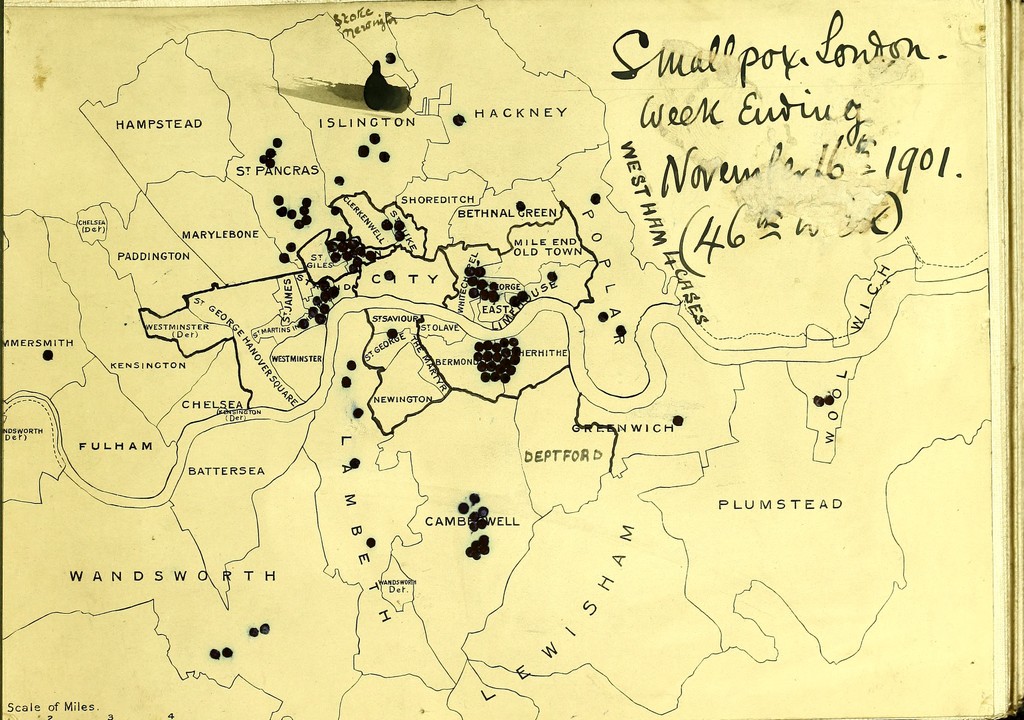 Stoke
Newington
Small pox. London.
Week Ending
November 16th 1901.
(46th week)
WESTHAM 4 CASES
HAMPSTEAD
ISLINGTON
HACKNEY
ST PANCRAS
SHOREDITCH
CLERKENWELL
ST LUKE
BETHNAL GREEN
POPLAR
CHELSEA
(Det)
MARYLEBONE
PADDINGTON
ST
GILES
MILE END
OLD TOWN
CITY
ST JAMES
WHITECHAPEL
GEORGE
EAST
LIMEHOUSE
WOOLWICH
ST GEORGE HANOVER SQUARE
WESTMINSTER
(Det)
ST MARTINS IN
ST SAVIOUR
ST OLAVE
ST GEORGE THE MARTYR
MMERSMITH
KENSINGTON
WESTMINSTER
BERMOND
HERHITHE
NEWINGTON
CHELSEA
KENSINGTON
(Det)
NDSWORTH
Det)
FULHAM
BATTERSEA
GREENWICH
DEPTFORD
LAMBETH
CAMBERWELL
PLUMSTEAD
WANDSWORTH
WANDSWORTH
Det.
LEWISHAM
Scale of Miles.
2 3 4